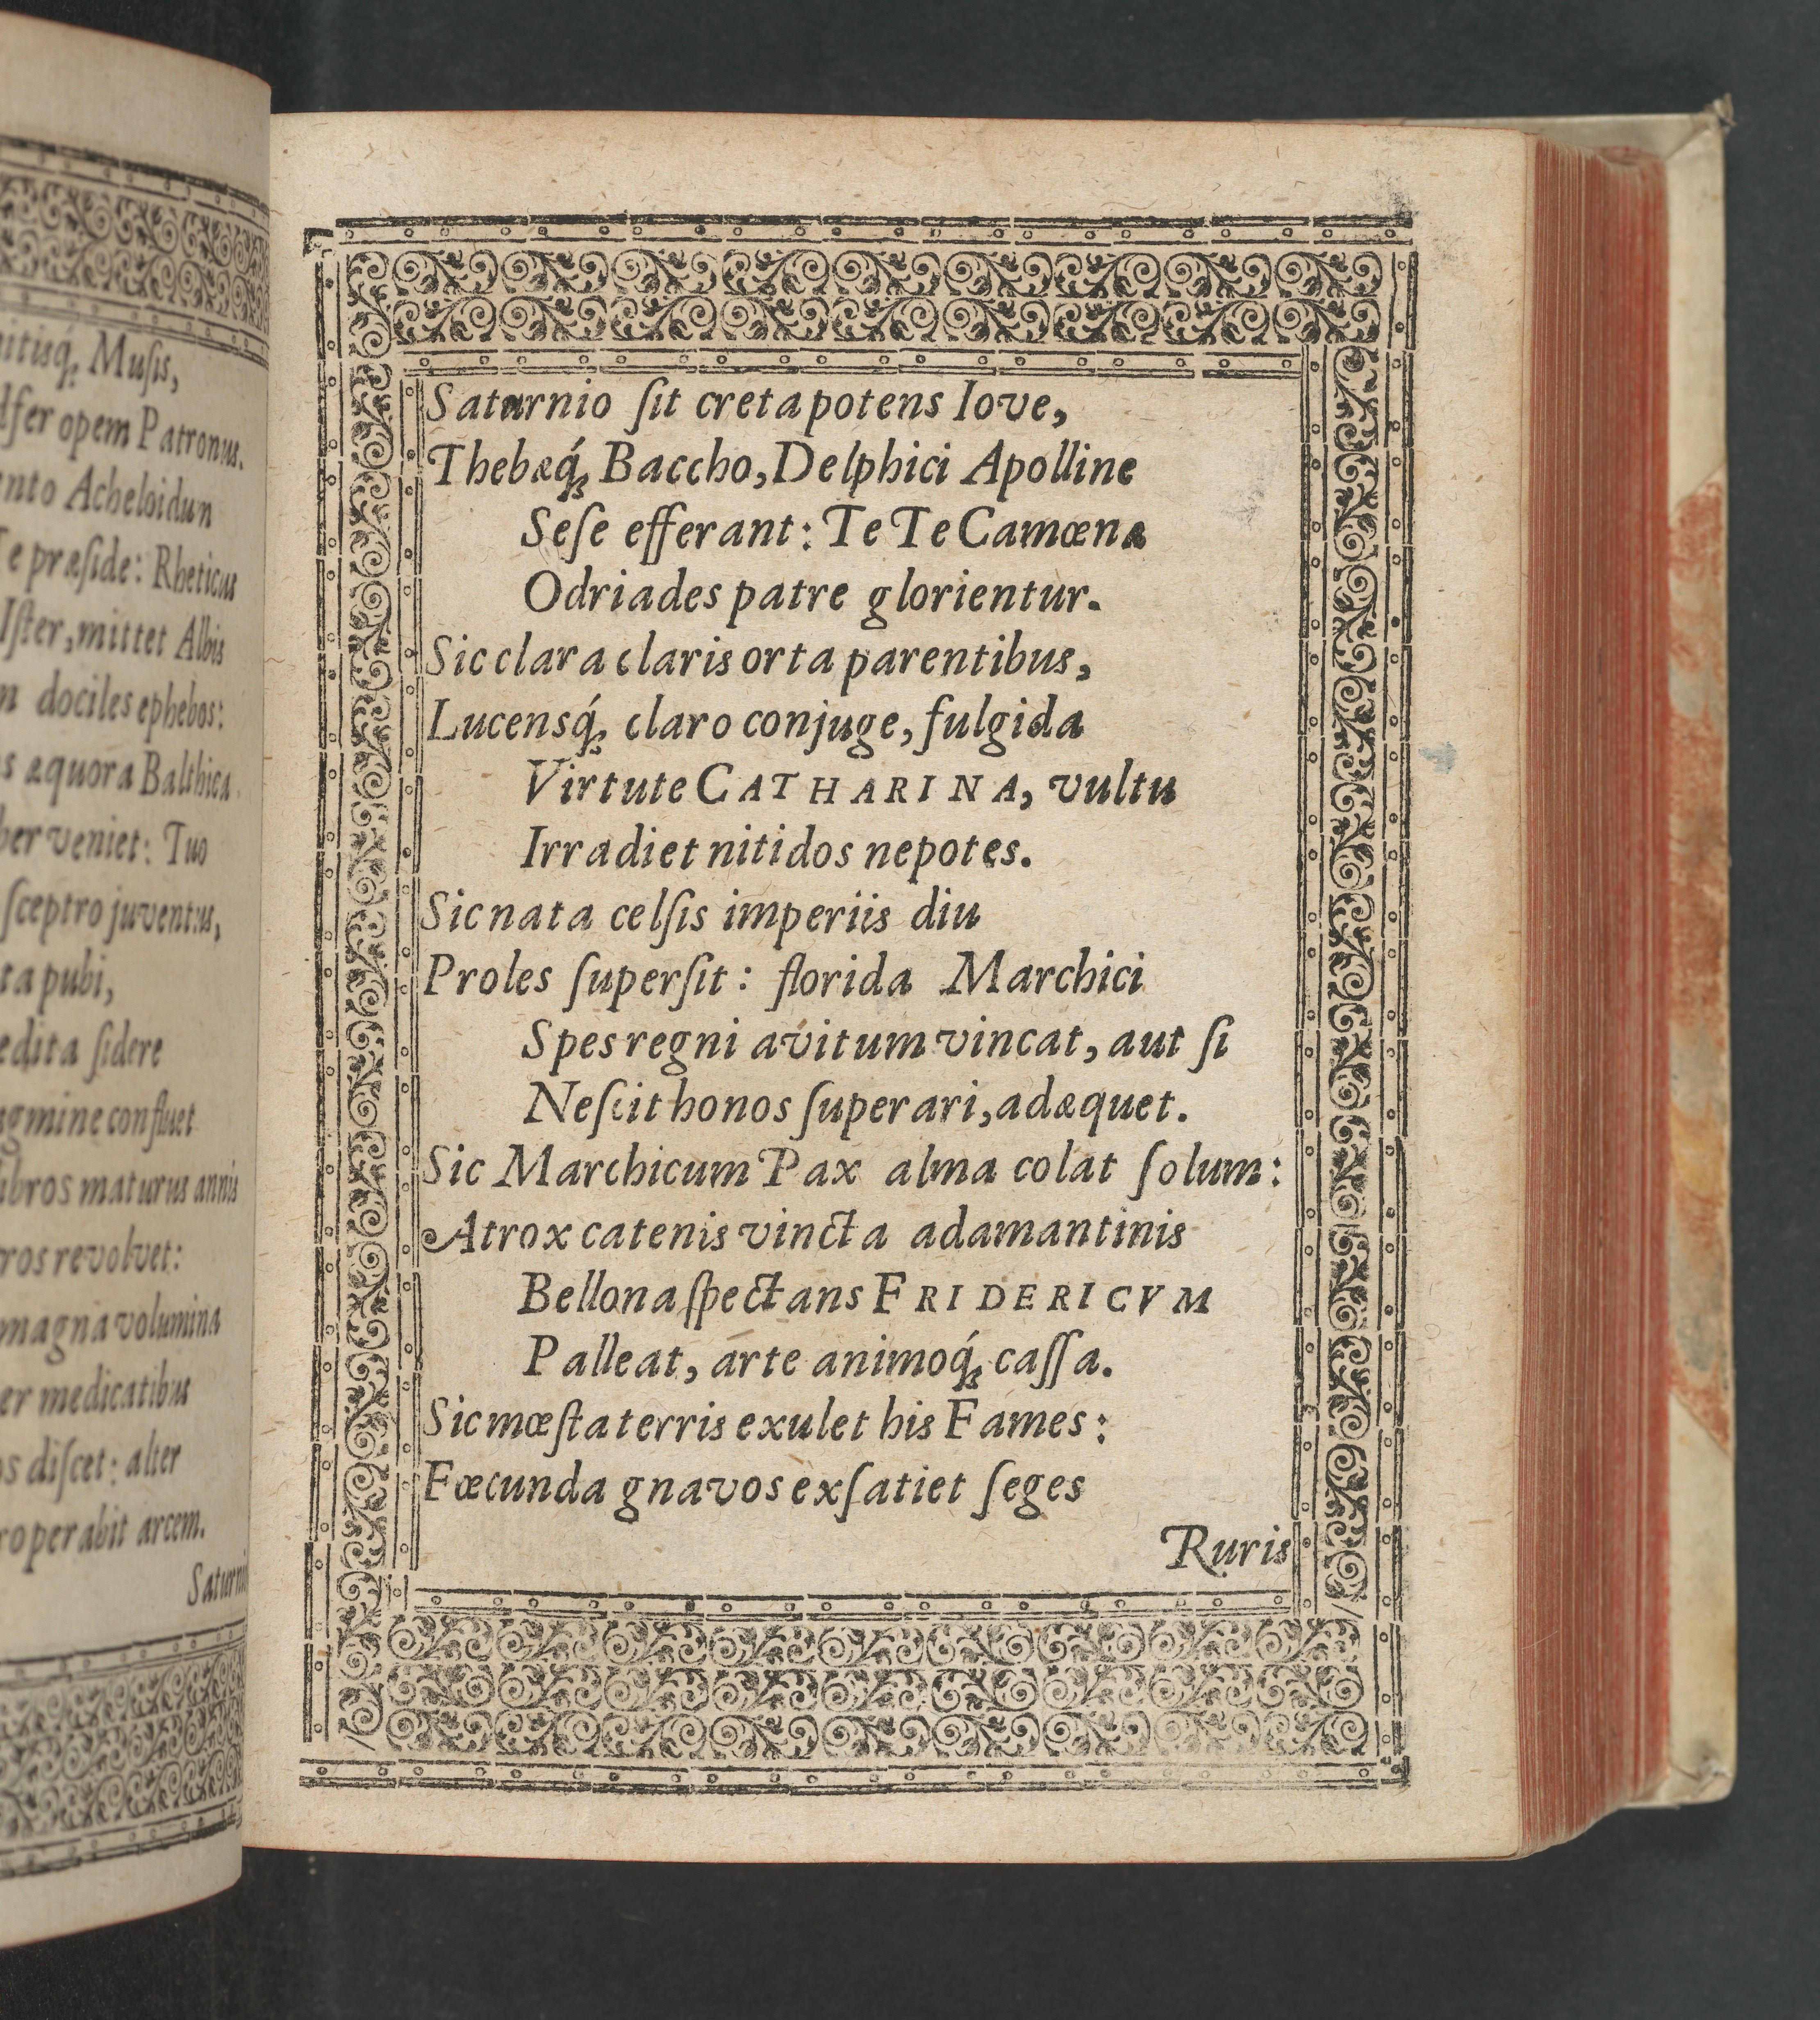 nitisq́; Musis,
opem Patronus.
Acheloidun
præside: Rheticus
Ister, mittet Albis
dociles ephebos:
æquora Balthica
veniet: Tuo
sceptro juventus,
pubi,
edita sidere
agmine confluet
libros maturus annis
revolvet:
magna volumina
medicatibus
discet: alter
arcem.
Saturni
Saturnio ſit creta potens Iove,
Thebæq́; Baccho, Delphici Apolline
Seſe efferant: Te Te Camœna
Odriades patre glorientur.
Sic clara claris orta parentibus,
Lucensq́; claro conjuge, fulgida
Virtute CATHARINA, vultu
Irradiet nitidos nepotes.
Sic nata celſis imperiis diu
Proles ſuperſit: florida Marchici
Spes regni avitum vincat, aut ſi
Neſcit honos ſuperari, adæquet.
Sic Marchicum Pax alma colat ſolum:
Atrox catenis vincta adamantinis
Bellona ſpectans FRIDERICVM
Palleat, arte animoq́; caſſa.
Sic mœſta terris exulet his Fames:
Fœcunda gnavos exſatiet ſeges
Ruris